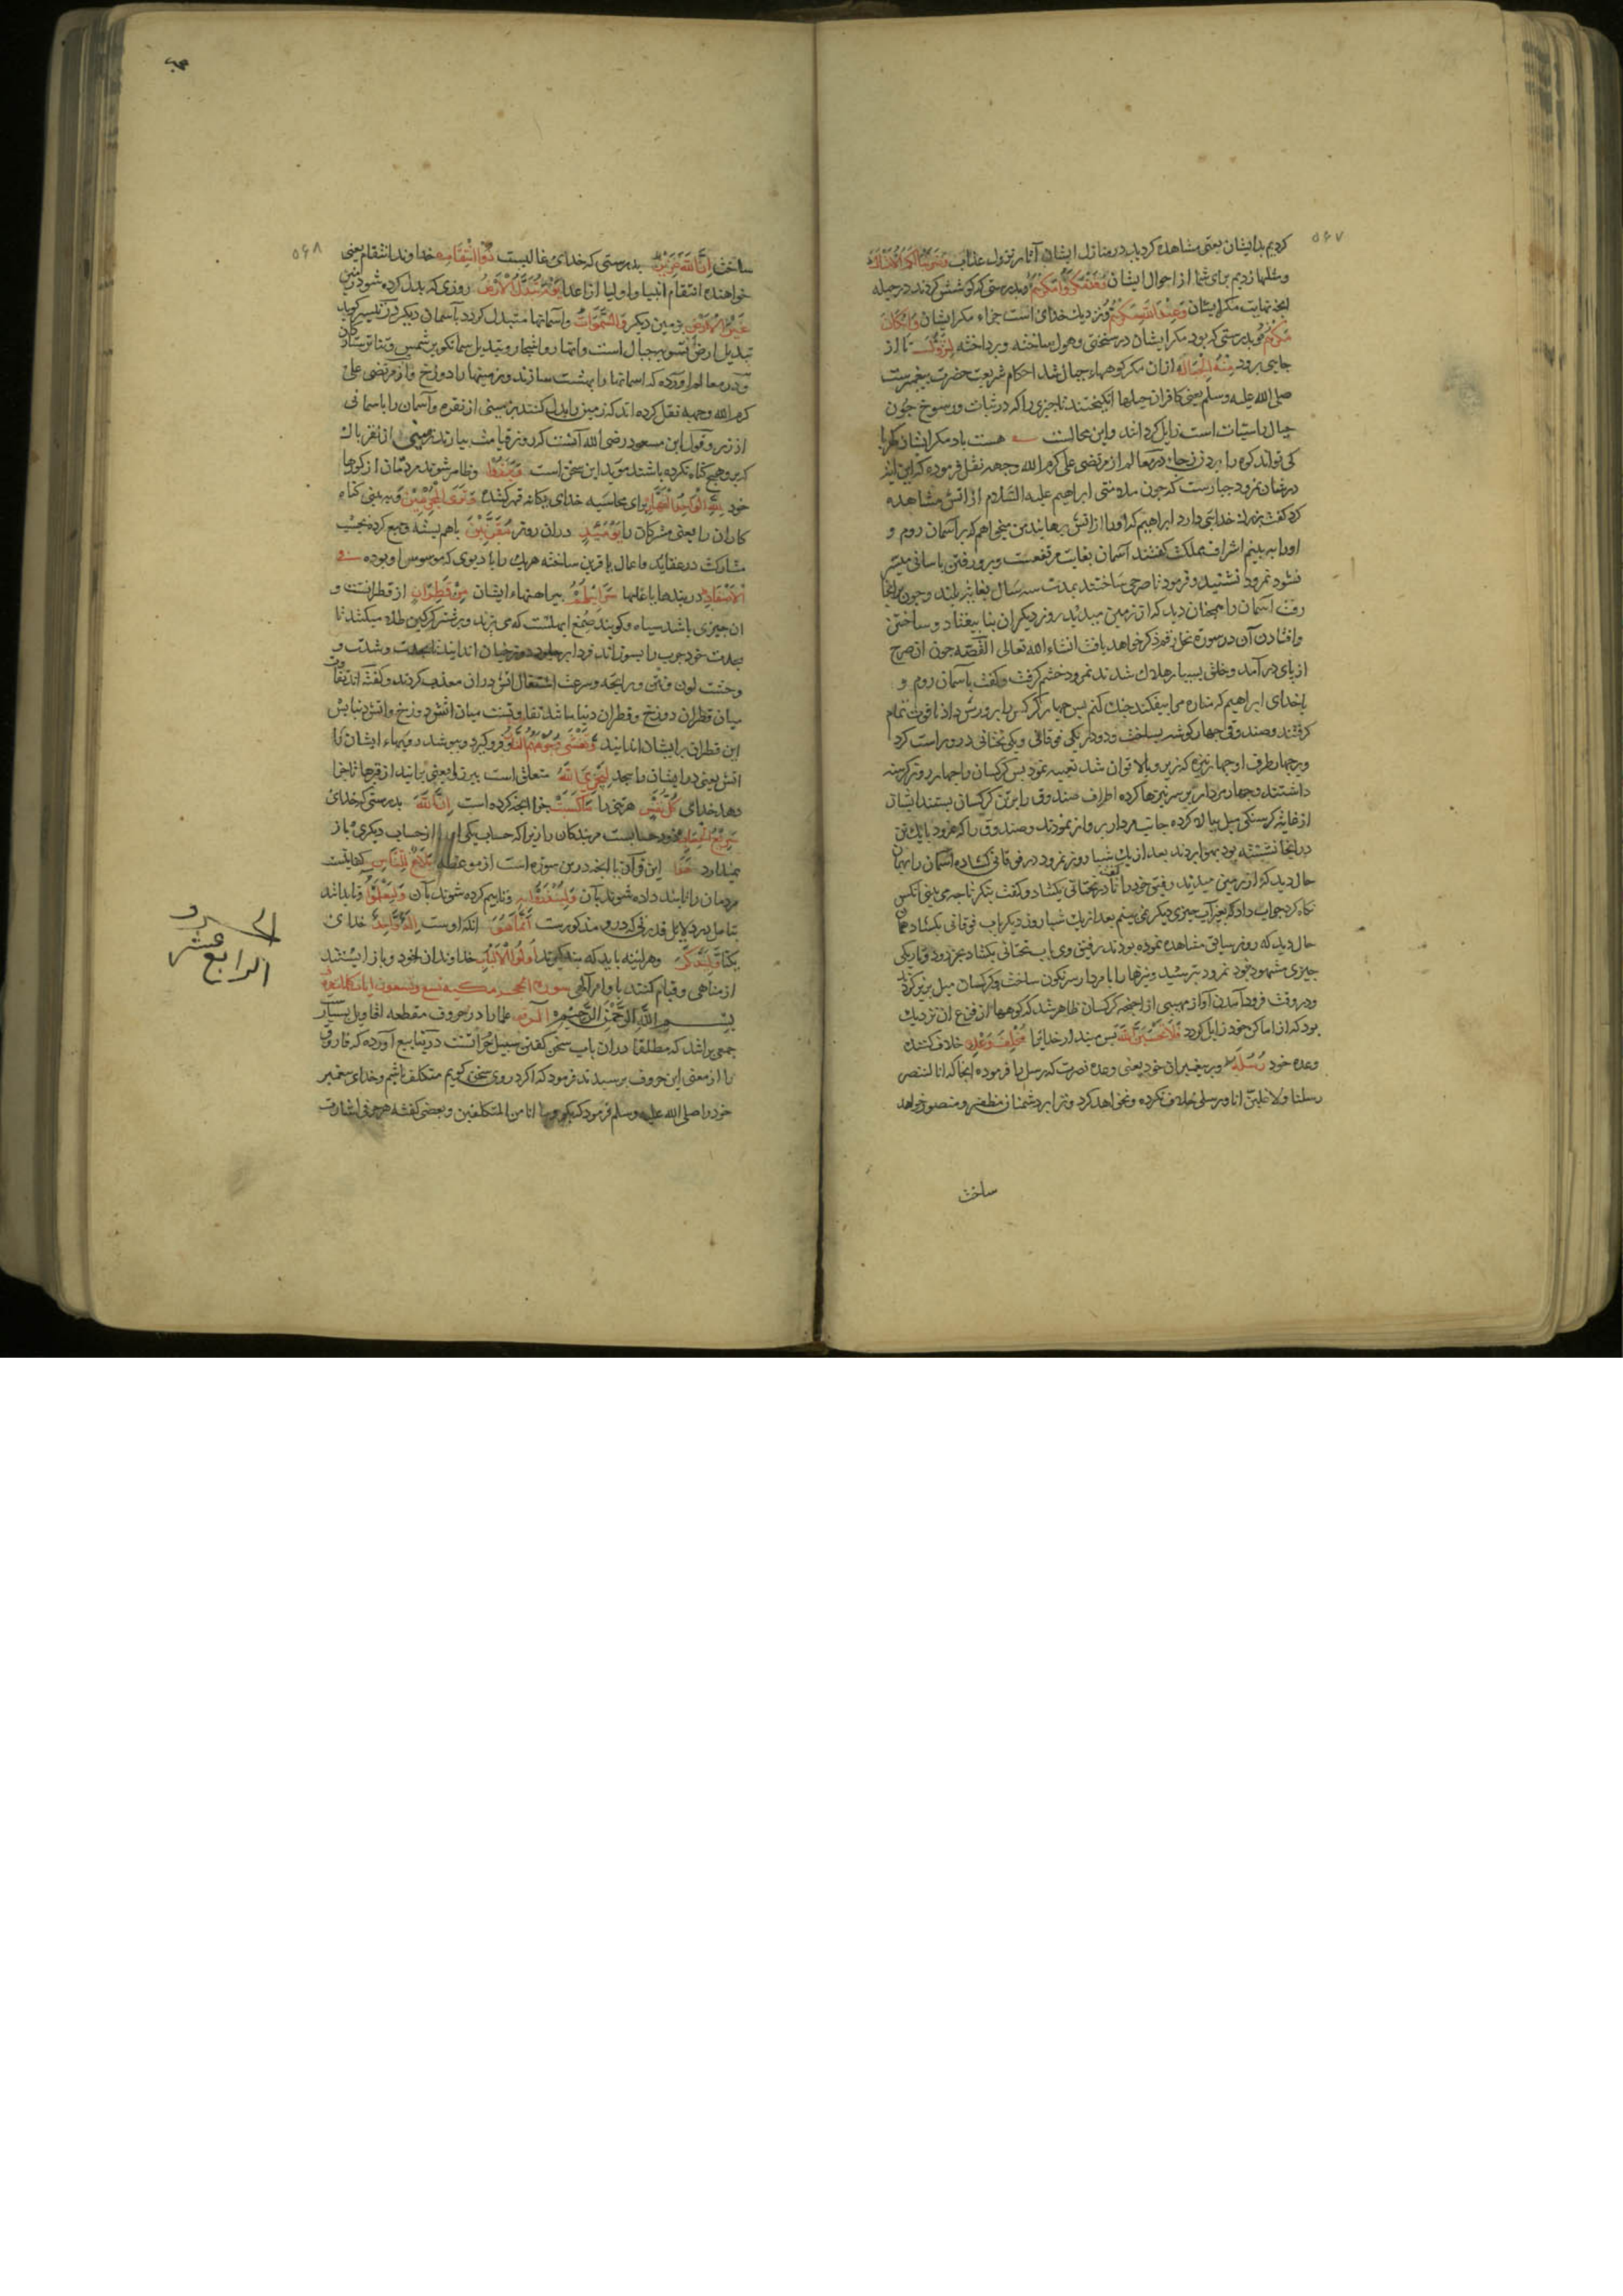 ۵۶۷
کردیم بدایشان یعنی مشاهده کردید در منازل ایشان آثار نزول عذاب وضربنا لکم الامثال
ومثلها زدیم برای شما از احوال ایشان وقد مکروا مکرهم وبدرستی که کوشش کردند در حیله
انچه نهایت مکر ایشان وعند الله مکرهم ونزدیک خدای است جزاء مکر ایشان وان کان
مکرهم وبدرستی که بود مکر ایشان در سختی وهول ساخته وپرداخته لتزول تا از
جای برود منه الجبال ازان مکر کوهها وجبال شد احکام شریعت حضرت پیغمبرست
صلی الله علیه وسلم یعنی کافران حیلها انکیختند تا چیزی را که در ثبات ورسوخ چون
جبال راسیات است زایل کردانند واین محالست هست باد مکر ایشان کهربا
کی تواند کوه را بردن زجا در معالم از مرتضی علی کرم الله وجهه نقل فرموده که این آیه
در شان نمرود جبارست که چون سلامتی ابراهیم علیه السلام از آتش مشاهده
کرد کفت بزرك خدایی دارد ابراهیم که اورا از آتش رهانید من میخواهم که بر آسمان روم و
اورا ببینم اشراف مملکت کفتند آسمان بغایت مرتفعست وبرو رفتن باسانی میسر
نشود نمرود نشنید وفرمود تا صرحی ساختند بمدت سه سال بغایت بلند وچون برانجا
رفت آسمان را همچنان دید که از زمین میدید روز دیکر ان بنا بیفتاد وساختن
وافتادن آن در سوره نحل رقم ذکر خواهد یافت انشاء الله تعالی القصه چون ان صرح
از پای در آمد وخلق بسیار هلاك شدند نمرود خشم کرفت وکفت بآسمان روم و
باخدای ابراهیم که مناره می بیفکند جنك کنم پس چهار کرکس را پرورش داد تا قوت تمام
کرفتند وصندوقی چهار کوشه بساخت ودو در یکی فوقانی ویکی تحتانی درو راست کرد
وبر چهار طرف او چهار نیزه که زیر وبالا توان شد تعبیه نمود پس کرکسان را چهار روز کرسنه
داشتند وچهار مردار بر سر نیزها کرده اطراف صندوق را بر تن کرکسان بستند ایشان
از غایت کرسنکی میل ببالا کرده جانب مردار پرواز نمودند وصندوق را که نمرود با یك تن
درانجا نشسته بود بهوا بردند بعد از یك شبا روز نمرود در فوقانی کشاده آسمان را بهمان
حال دید که از زمین میدید رفیق خود را کفت تا در تحتانی بکشاد وکفت بنکر تا چه می بینی آنکس
نکاه کرد جواب داد که بغیر آب چیزی دیکر نمی بینم بعد از یك شبا روز دیکر باب فوقانی بکشاد همان
حال دید که روز سابق مشاهده نموده بودند رفیق وی باب تحتانی بکشاد بجز دود وتاریکی
چیزی مشهود نمرود بترسید ونیزها را با مردار سرنکون ساخت وکرکسان میل بزیر کردند
ودر وقت فرود آمدن آواز مهیبی از اجنحه کرکسان ظاهر شد که کوهها از فزع ان نزدیك
بود که از اماکن خود زایل کردد فلا تحسبن الله پس مپندار خدایرا مخلف وعده خلاف کننده
وعده خود رسله بر پیغمبران خود یعنی وعده نصرت که رسل را فرموده انجا که انا لننصر
رسلنا ولاغلبن انا ورسلی خلاف نکرده ونخواهد کرد وترا بر دشمنان مظفر ومنصور خواهد
ساخت
۵۶۸
ساخت ان الله عزیز بدرستی که خدای غالبست ذو انتقام خداوند انتقام یعنی
خواهنده انتقام انبیا واولیا از اعدا یوم تبدل الارض روزی که بدل کرده شود زمین
غیر الارض بزمین دیکر والسموات واسمانها متبدل کردد بآسمان دیکر در تیسیر کوید
تبدیل ارض بتسویه جبال است وانهار واشجار وتبدیل سما بتکویر شمس وتناثر ستارکان
ودر معالم اورده که اسمانها را بهشت سازند وزمینها را دوزخ واز مرتضی علی
کرم الله وجهه نقل کرده اند که زمین را بدل کنند بزمینی از نقره وآسمان را باسمانی
از زر وقول ابن مسعود رضی الله آنست که روز قیامت بیارند زمینی از نقره پاك
که برو هیچ کناه نکرده باشند موید این سخن است وبرزوا وظاهر شوند مردمان از کورها
خود لله الواحد القهار برای محاسبه خدای یکانه قهر کننده وتری المجرمین وببینی کناه
کاران را یعنی مشرکان را یومئذ دران روز مقرنین باهم بسته وجمع کرده بحسب
مشارکت در عقاید واعمال یا قرین ساخته هریك را با دیوی که موسوس او بوده فی
الاصفاد در بندها یا غلها سرابیلهم پیراهنهاء ایشان من قطران از قطرانست و
ان چیزی باشد سیاه وکویند صمغ ابهلست که می پزند وبر شتر کرکین طلا میکنند تا
بحدت خود جرب را بسوزاند فردا بر جلود دوزخیان اندایند تا بحدت وشدت و
وحشت لون ونتن ورایحه وسرعت اشتعال آتش دران معذب کردند وکفته اند تفاوت
میان قطران دوزخ وقطران دنیا مانند تفاوتست میان آتش دوزخ وآتش دنیا پس
این قطران بر ایشان اندایند وتغشی وجوههم النار وفرو کیرد وبپوشد رویهاء ایشان را
آتش یعنی در ایشان رسد لیجزی الله متعلق است ببرزوا یعنی برانند از قبرها تا جزا
دهد خدای کل نفس هر تنی را ما کسبت جزا انچه کرده است ان الله بدرستی که خدای
سریع الحساب زود حسابست مر بندکان را زیرا که حساب یکی او را از حساب دیکری باز
نمیدارد هذا این قرآن یا انچه درین سوره است از موعظه بلاغ للناس کفایتست
مردمان را تا پند داده شوند بآن ولینذروا به وتا بیم کرده شوند بآن ولیعلموا وتا بدانند
بتامل در دلایل قدرتی که درو مذکورست انما هو انکه اوست اله واحد خدای
یکتا ولیذکر وهرآینه باید که پند کیرند اولوا الالباب خداوندان خرد وباز ایستند
از مناهی وقیام کنند باوامر الهی سورة الحجر مکیة تسع وتسعون آیات
بسم الله الرحمن الرحیم الر علما را در حروف مقطعه اقاویل بسیار
جمعی برانند که مطلقا دران باب سخن کفتن سبیل جرأتست در ینابیع آورده که فاروق
را از معنی این حروف پرسیدند فرمود که اکر دروی سخن کویم متکلف باشم وخدای پیغمبر
خود را صلی الله علیه وسلم فرمود که بکو وما انا من المتکلفین وبعضی کفته هر حرفی اشارت
الرابع عشر